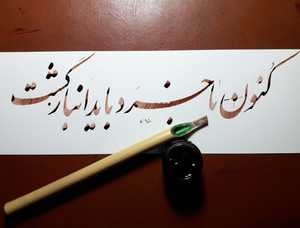 کنون با خرد باید انباز گشت